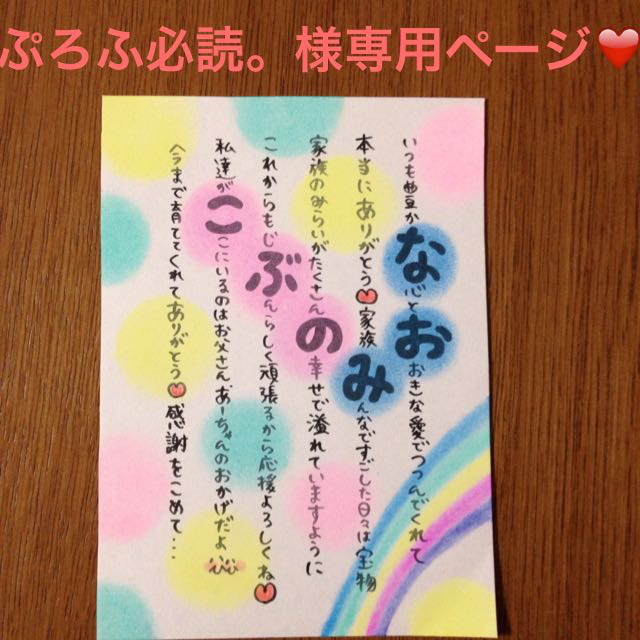 ぷろふ必読。様専用ページ❤️
いつも豊かな心とおおきな愛でつつんでくれて
本当にありがとう♡家族みんなですごした日々は宝物
家族のみらいがたくさんの幸せで溢れていますように
これからもじぶんらしく頑張るから応援よろしくね♡
私達がここにいるのはお父さんあーちゃんのおかげだよ
今まで育ててくれてありがとう♡感謝をこめて・・・